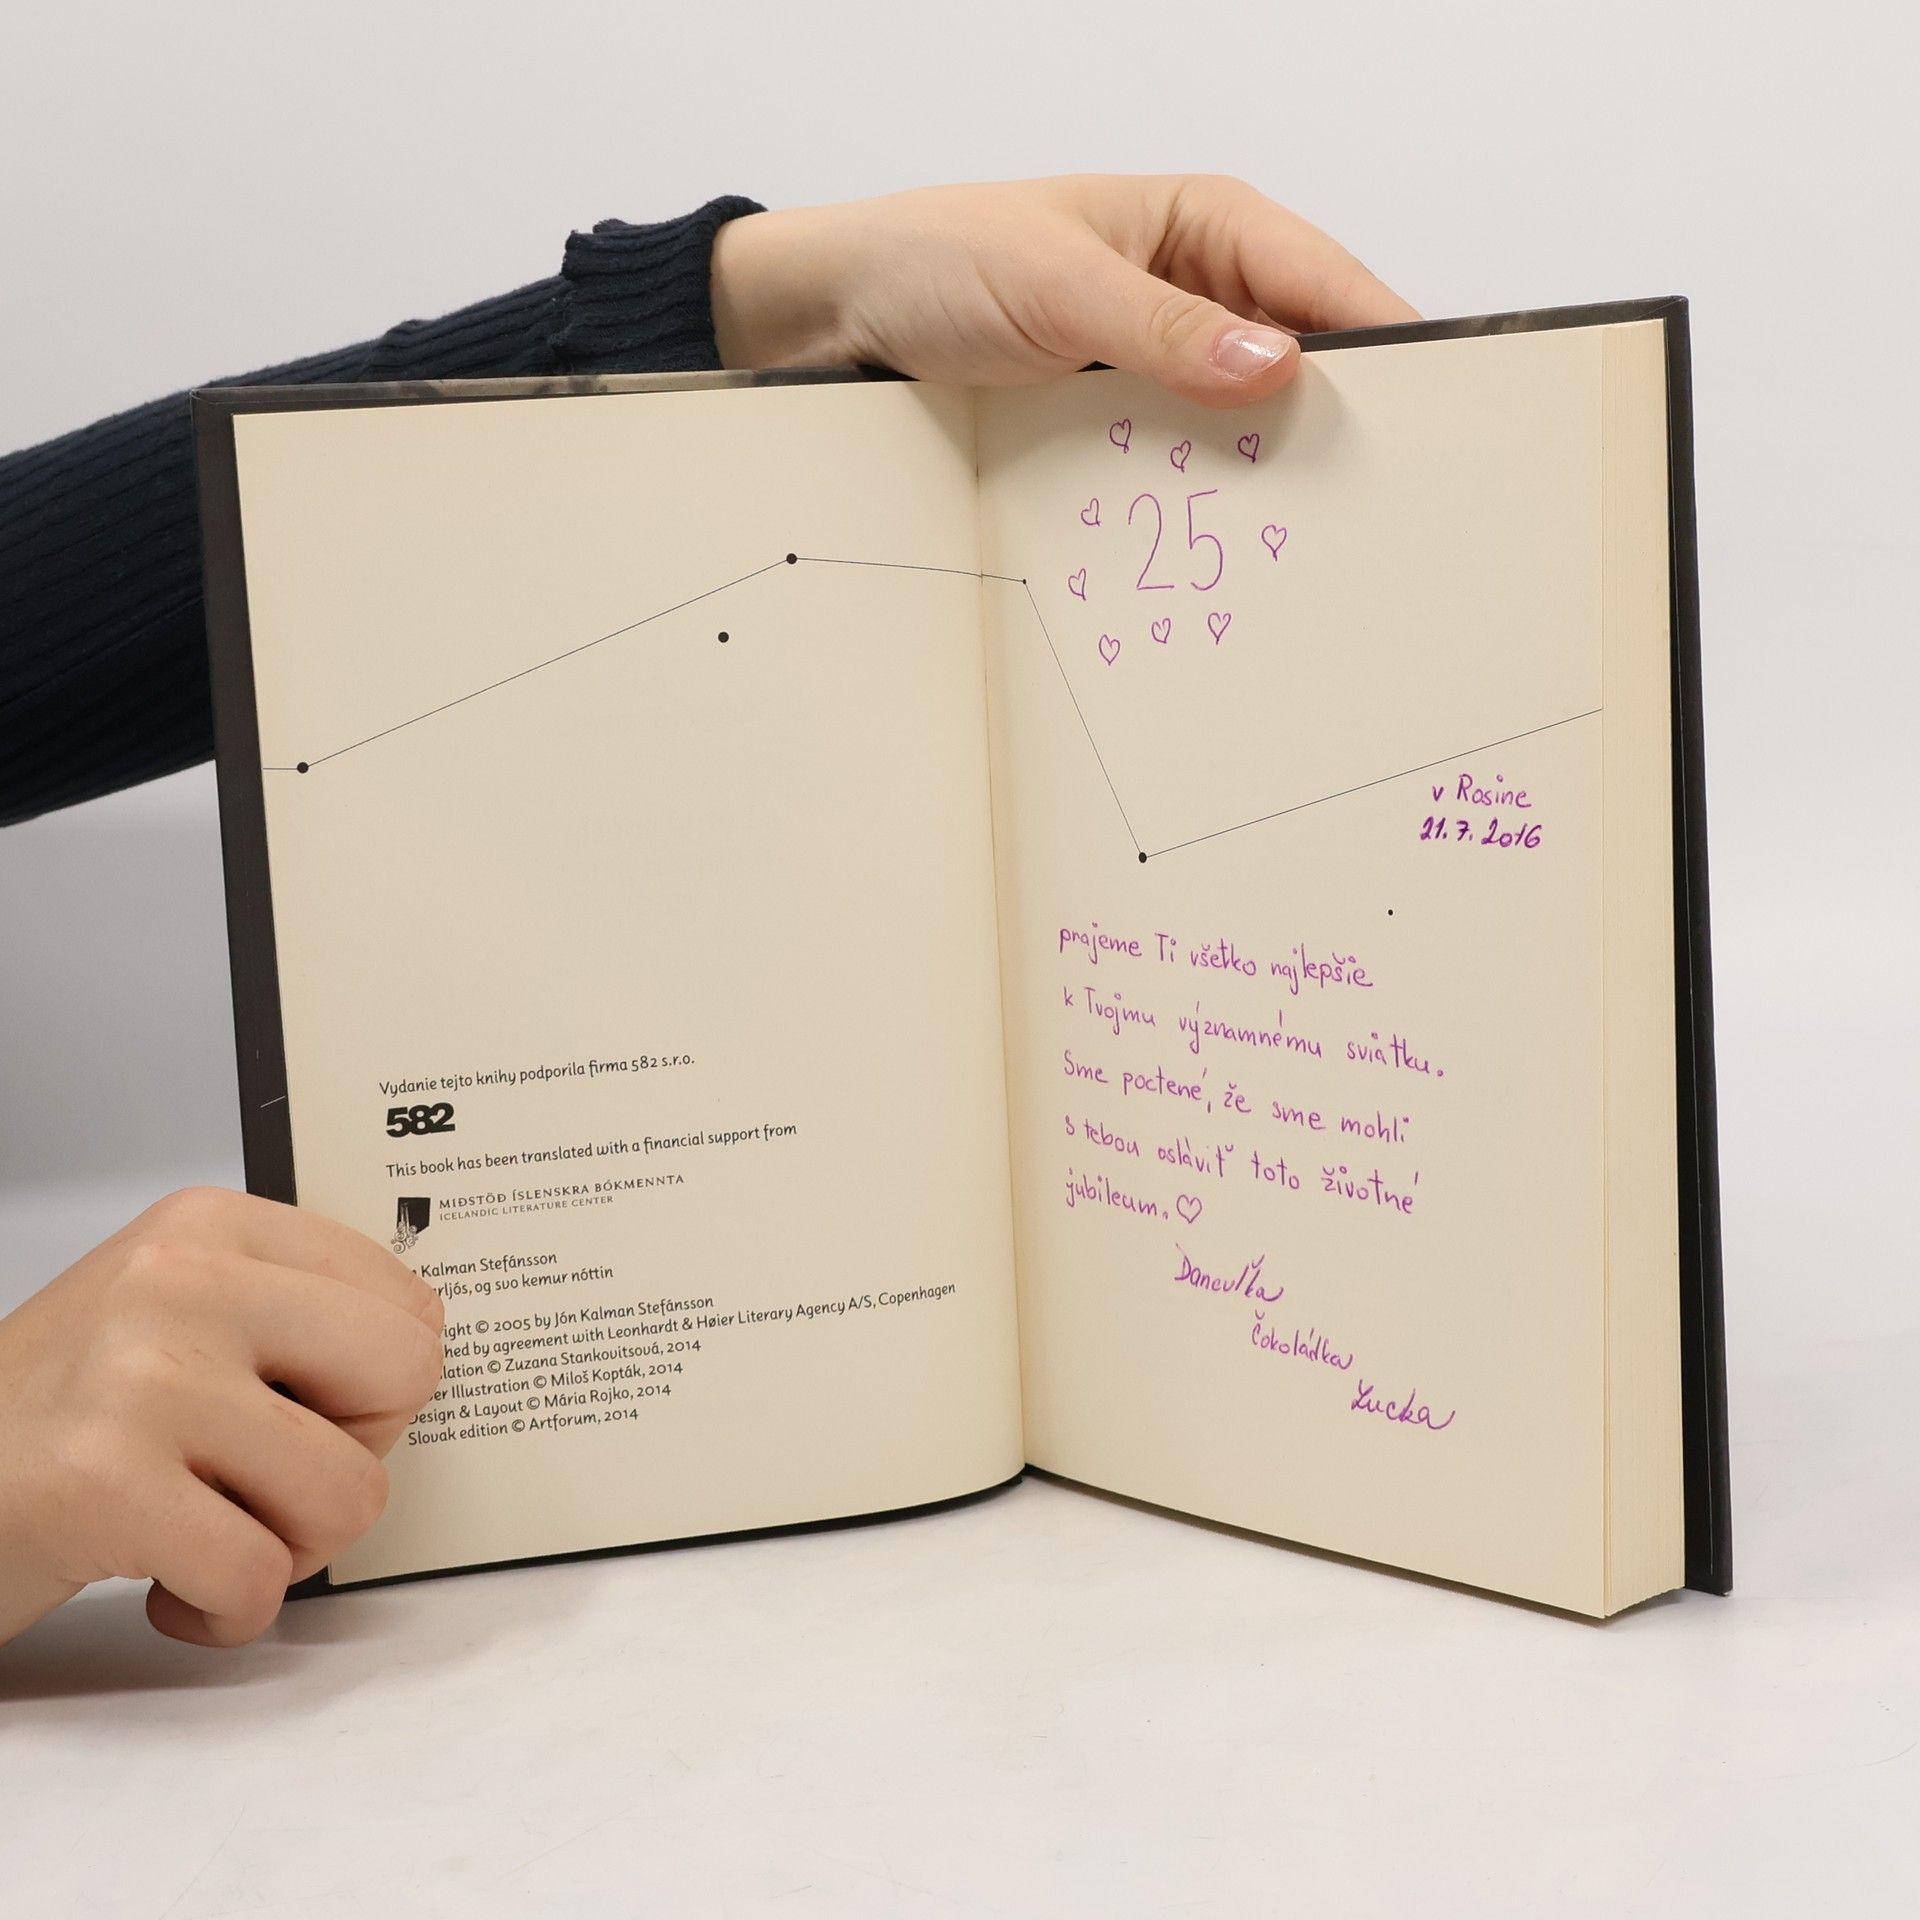 Vydanie tejto knihy podporila firma 582 s.r.o.
582
This book has been translated with a financial support from
MIÐSTÖÐ ÍSLENSKRA BÓKMENNTA
ICELANDIC LITERATURE CENTER
Kalman Stefánsson
rljós, og svo kemur nóttin
ight © 2005 by Jón Kalman Stefánsson
hed by agreement with Leonhardt & Høier Literary Agency A/S, Copenhagen
lation © Zuzana Stankovitsová, 2014
er Illustration © Miloš Kopták, 2014
Design & Layout © Mária Rojko, 2014
Slovak edition © Artforum, 2014
25
v Rosine
21. 7. 2016
prajeme Ti všetko najlepšie
k Tvojmu významnému sviatku.
Sme poctené, že sme mohli
s tebou osláviť toto životné
jubileum. ♡
Čokoládka
Lucka